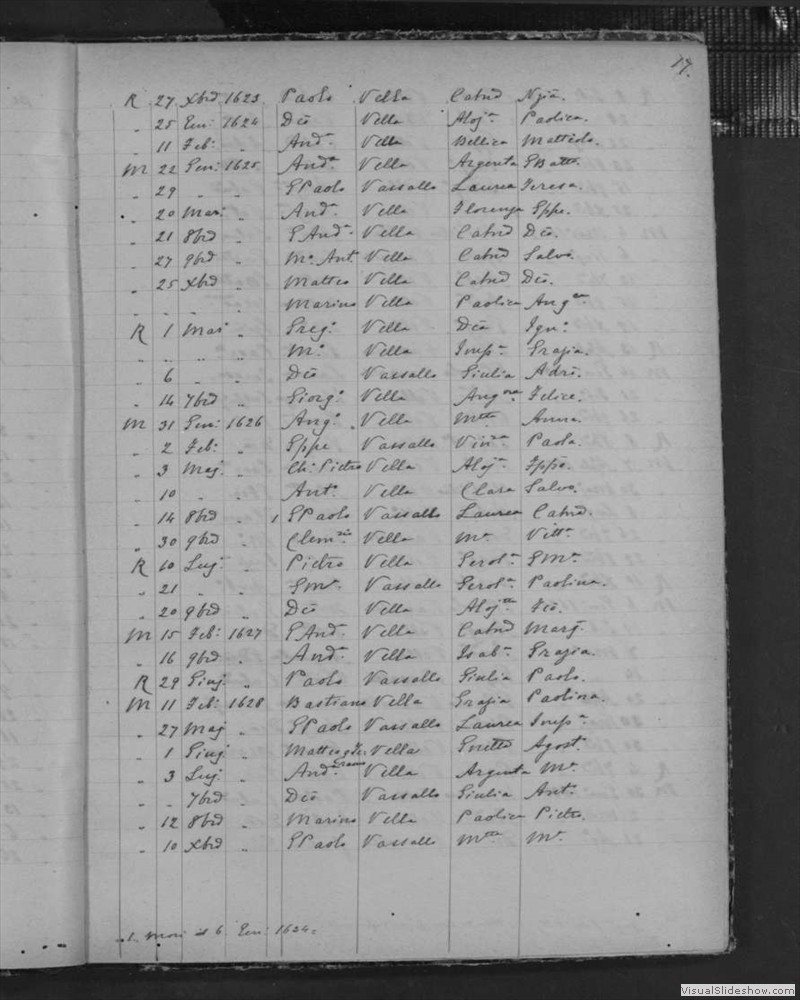 17.
R 27 Xbrẽ 1623 Paolo Vella Catnã Nzia.
„ 25 Gen: 1624 Dcõ Vella Aloja Paolica.
„ 11 Feb: „ Anda Vella Bellica Matteolo.
M 22 Gen: 1625 Anda Vella Argenta GBatta.
„ 29 „ „ GPaolo Vassallo Laurea Teresa.
„ 20 Mar: „ Anda Vella Florenza Gppe.
„ 21 8brẽ „ GAnda Vella Catnã Dcõ.
„ 27 9brẽ „ Mo Anto Vella Catnã Salvo.
„ 25 Xbrẽ „ Matteo Vella Catnã Dcõ.
„ „ „ „ Marino Vella Paolica Angca
R 1 Mar: „ Grego Vella Dcã Igno
„ „ „ „ Mo Vella Impa Grazia.
„ 6 „ „ Dcõ Vassallo Giulia Adrõ.
„ 14 7brẽ „ Giorgo Vella Angca Felice.
M 31 Gen: 1626 Ango Vella Mtta Anna.
„ 2 Feb: „ Gppe Vassallo Vinca Paola.
„ 3 Mag: „ Ch: Pietro Vella Aloja
„ 10 „ „ Anto Vella Clara Salvo.
„ 14 8brẽ „ 1. GPaolo Vassallo Laurea Catnã.
„ 30 9brẽ „ Vella Ma Vitta
R 10 Lug: „ Pietro Vella Gerola GMa
„ 21 „ „ GMa Vassallo Gerola Paolina.
„ 20 9brẽ „ Dcõ Vella Aloja Fcõ.
M 15 Feb: 1627 GAnda Vella Catnã Marg
„ 16 9brẽ „ Anda Vella Isaba Grazia.
R 29 Giug „ Paolo Vassallo Giulia Paolo.
M 11 Feb: 1628 Bastiano Vella Grazia Paolina.
„ 27 Mag „ GPaolo Vassallo Laurea Impa
„ 1 Giug „ Matteo Vella Agosto
„ 3 Lug „ Anda Vella Argenta Ma
„ „ 7brẽ „ Dcõ Vassallo Giulia Anto
„ 12 8brẽ „ Marino Vella Paolica Pietro.
„ 10 Xbrẽ „ GPaolo Vassallo Mtta Ma
1. Morì 6. Gen: 1624.
VisualSlideshow.com